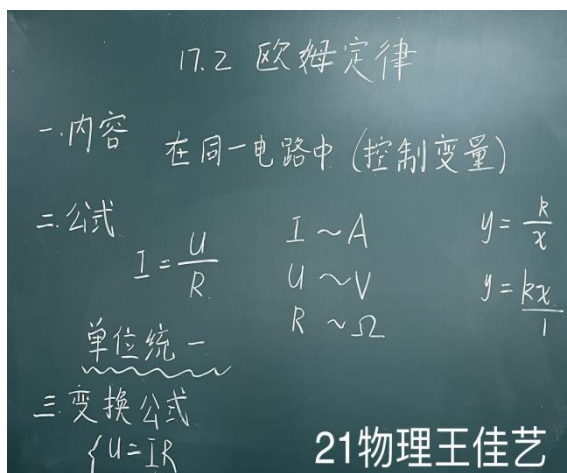 17.2 欧姆定律
一.内容
在同一电路中(控制变量)
二.公式
I=U/R
I~A
U~V
R~Ω
y=k/x
y=kx/1
单位统一
三.变换公式
{U=IR
21物理王佳艺